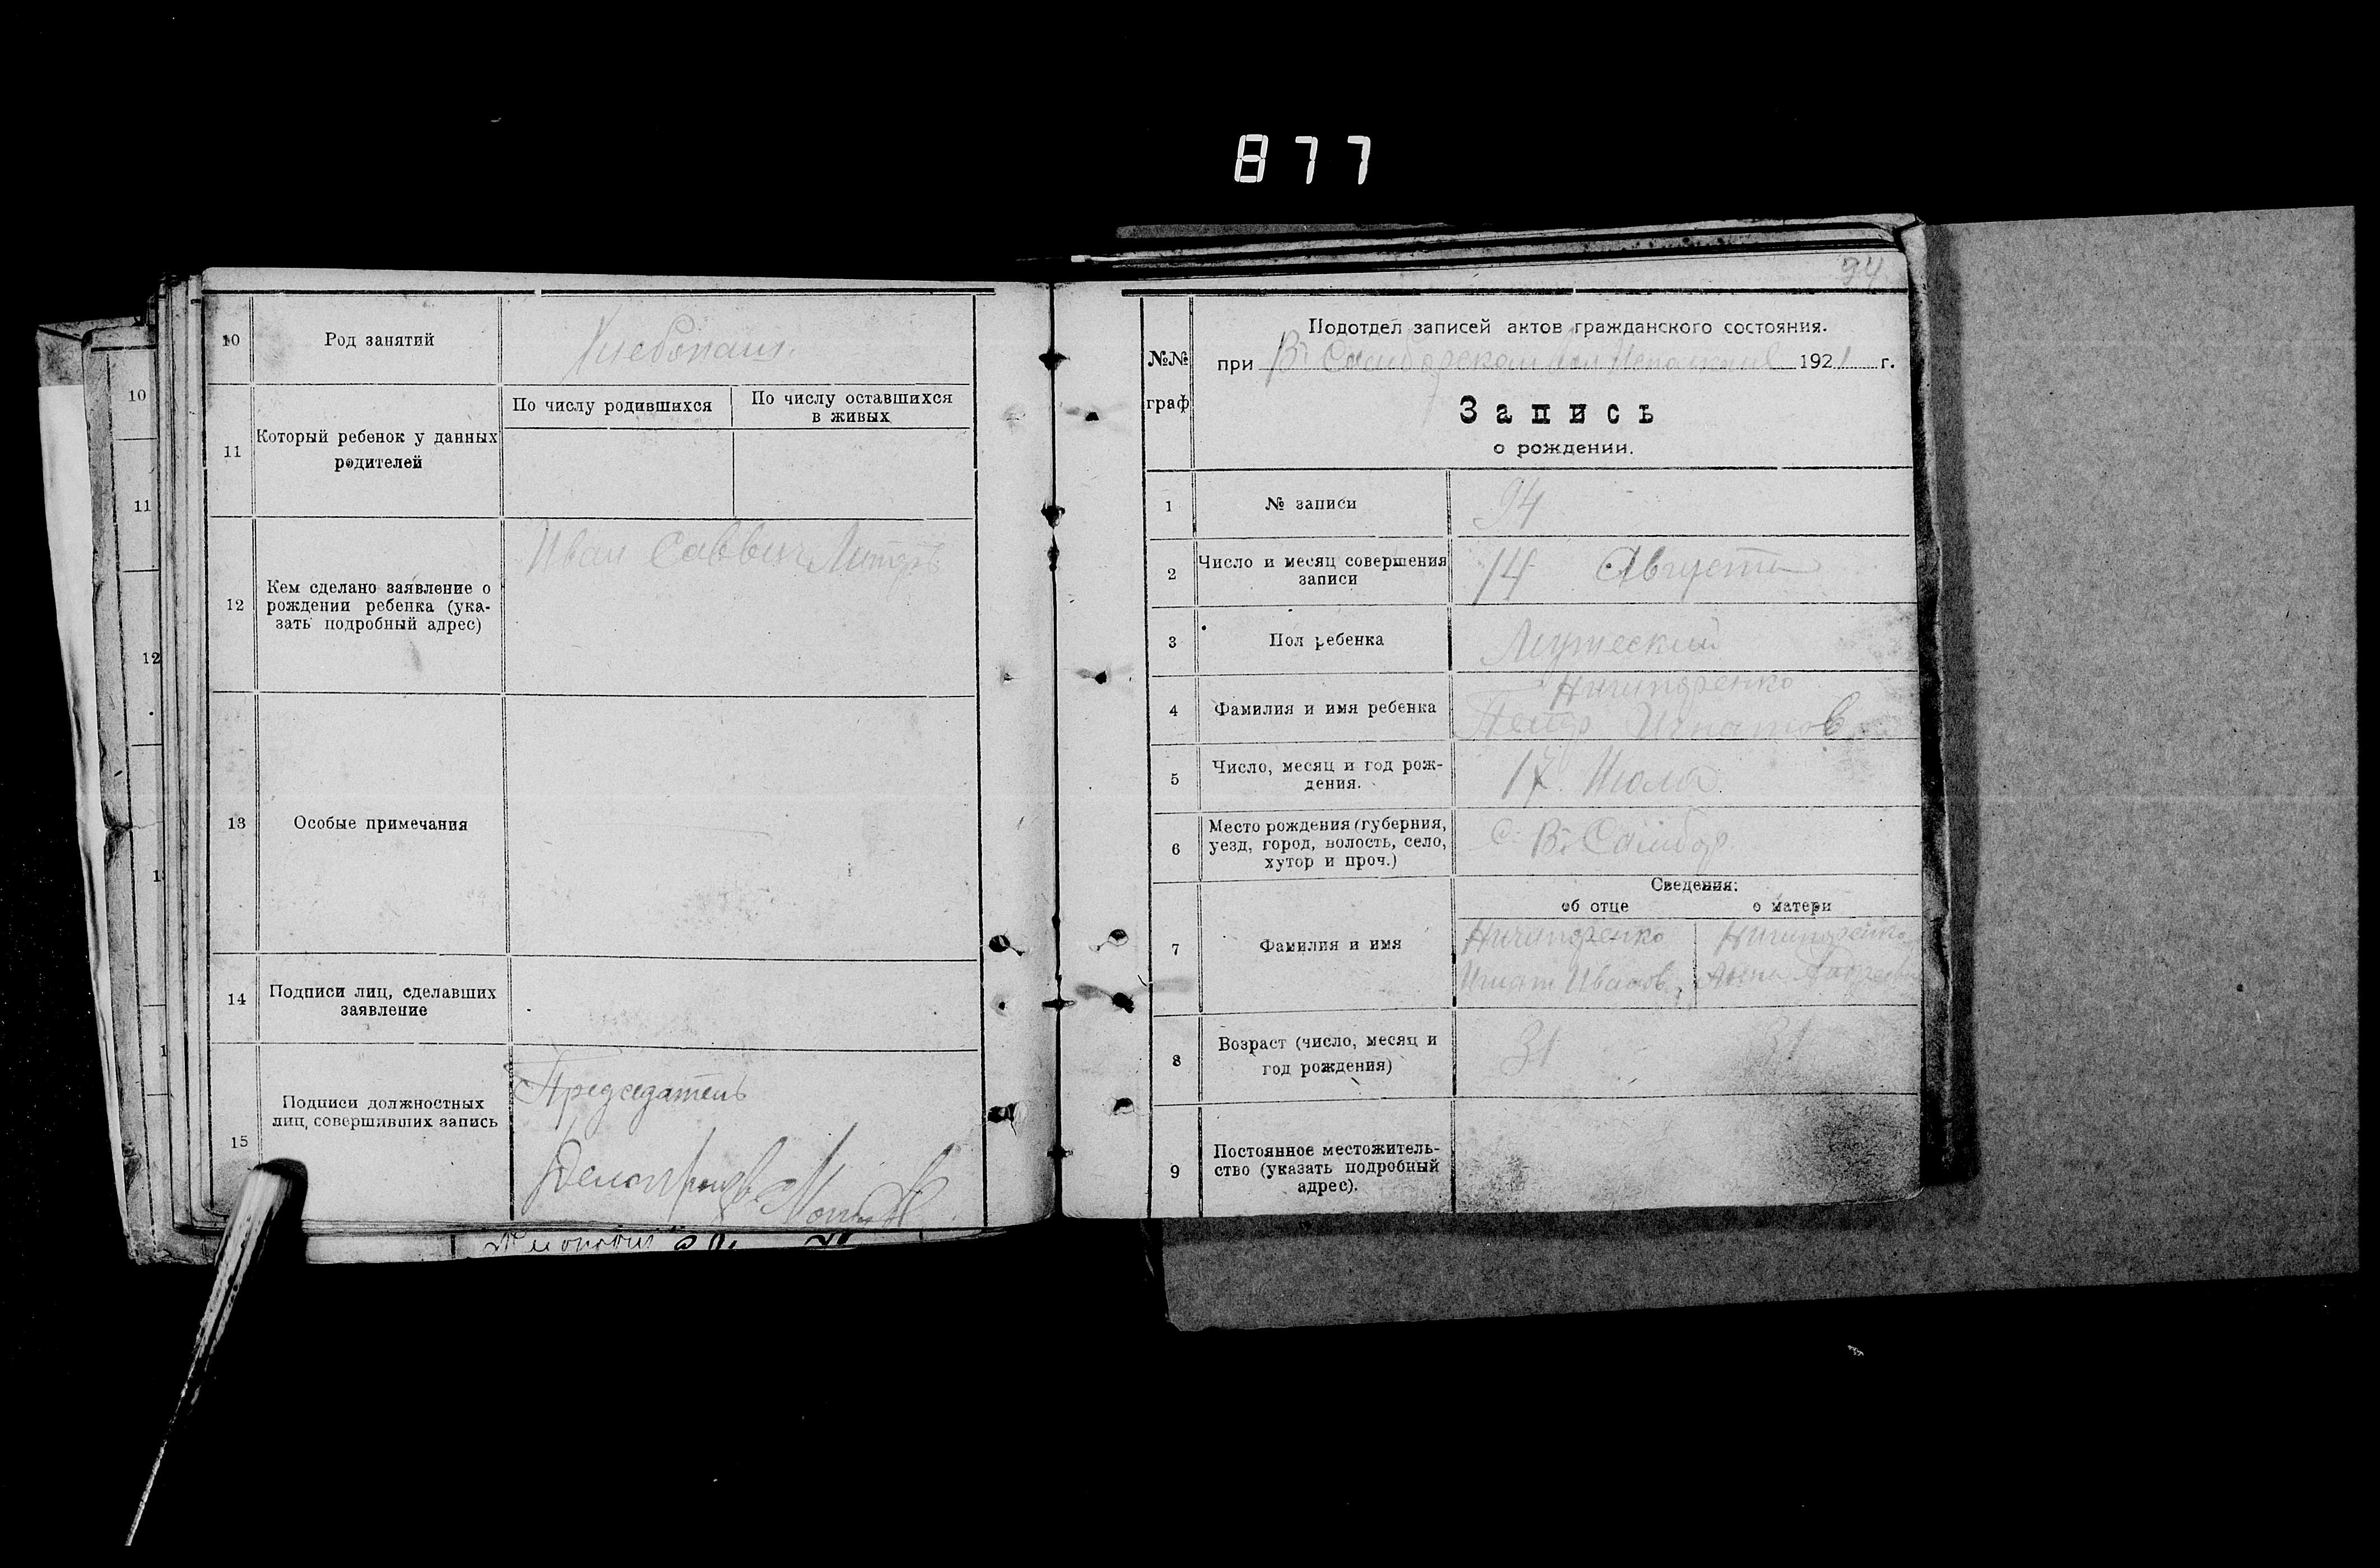 877
10
Род занятий
Хлебопаш.
11
Который ребенок у данных
родителей
По числу родившихся
По числу оставшихся
в живых
12
Кем сделано заявление о
рождении ребенка (ука-
зать подробный адрес)
Иван Саввич
13
Особые примечания
14
Подписи лиц, сделавших
заявление
15
Подписи должностных
лиц, совершивших запись
Председатель
Делопроизв.
10
11
12
94
№№
граф
Подотдел записей актов гражданского состояния.
при В. Самборском вол Исполкоме 1921 г.
Запись
о рождении.
1
№ записи
94
2
Число и месяц совершения
записи
14 Августа
3
Пол ребенка
Мужеский
4
Фамилия и имя ребенка
Ничипоренко
Петр Игнатов
5
Число, месяц и год рож-
дения.
17 Июля
6
Место рождения (губерния,
уезд, город, волость, село,
хутор и проч.)
С. В. Самбор
Сведения:
об отце
о матери
7
Фамилия и имя
Ничипоренко
Игнат Иванов
Ничипоренко
Анна Андреевна
8
Возраст (число, месяц и
год рождения)
31
31
9
Постоянное местожитель-
ство (указать подробный
адрес).